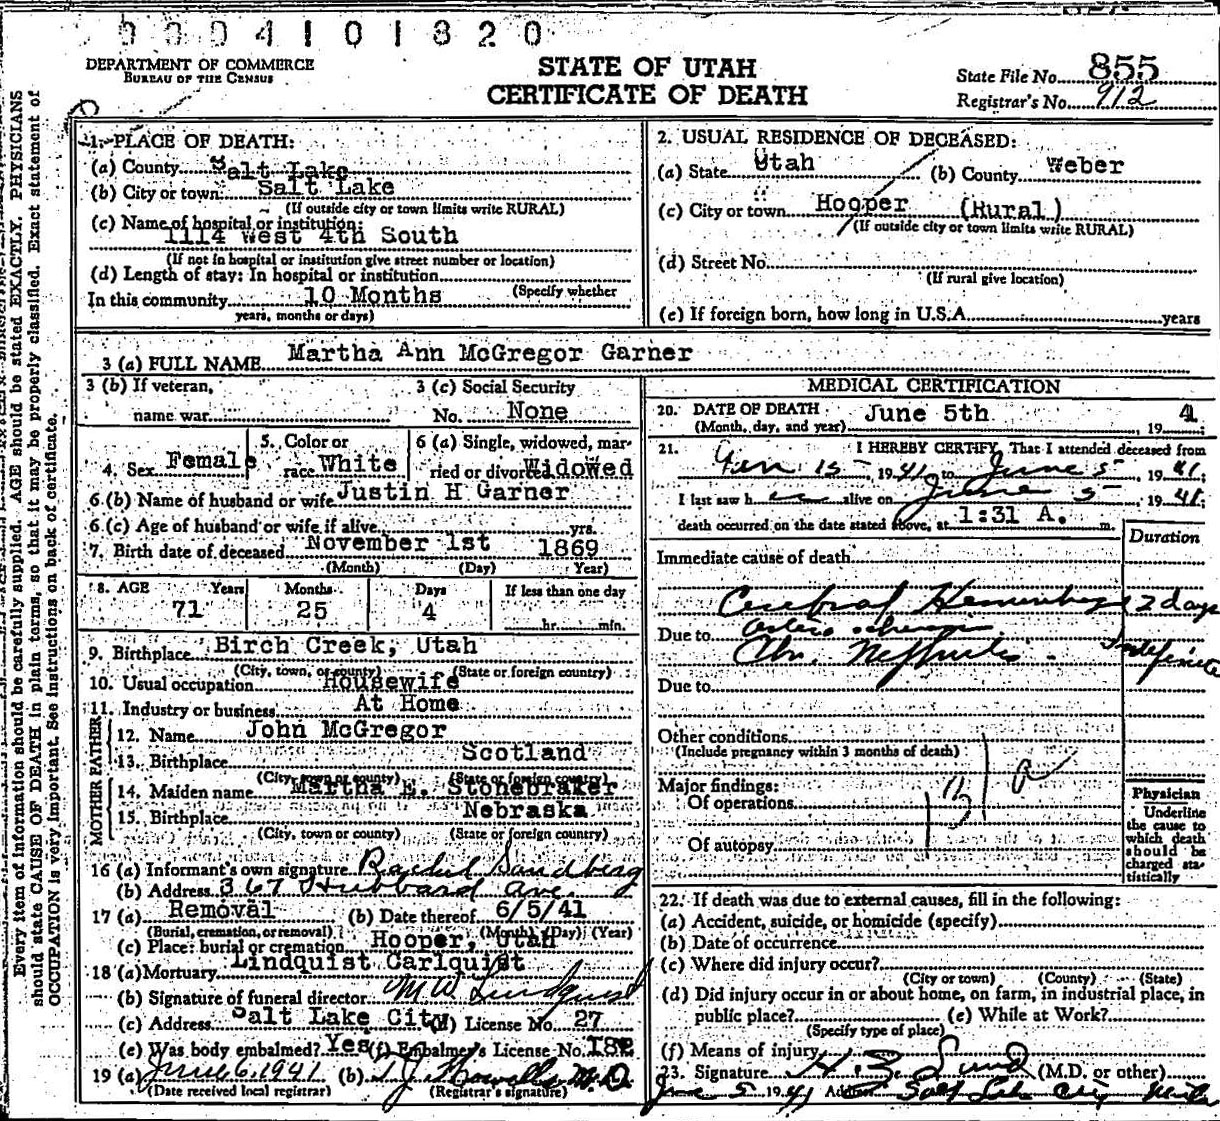 0004101820
DEPARTMENT OF COMMERCE
BUREAU OF THE CENSUS
STATE OF UTAH
CERTIFICATE OF DEATH
State File No. 855
Registrar's No. 912
Every item of information should be carefully supplied. AGE should be stated EXACTLY. PHYSICIANS
should state CAUSE OF DEATH in plain terms, so that it may be properly classified. Exact statement of
OCCUPATION is very important. See instructions on back of certificate.
1. PLACE OF DEATH:
(a) County Salt Lake
(b) City or town Salt Lake
(If outside city or town limits write RURAL)
(c) Name of hospital or institution:
1114 West 4th South
(If not in hospital or institution give street number or location)
(d) Length of stay: In hospital or institution
(Specify whether
In this community 10 Months
years, months or days)
2. USUAL RESIDENCE OF DECEASED:
(a) State Utah (b) County Weber
(c) City or town Hooper (Rural)
(If outside city or town limits write RURAL)
(d) Street No.
(If rural give location)
(e) If foreign born, how long in U.S.A. years
3 (a) FULL NAME Martha Ann McGregor Garner
3 (b) If veteran, name war
3 (c) Social Security No. None
4. Sex Female
5. Color or race White
6 (a) Single, widowed, married or divorced Widowed
6 (b) Name of husband or wife Justin H Garner
6 (c) Age of husband or wife if alive yrs.
7. Birth date of deceased November 1st 1869
(Month) (Day) Year)
8. AGE Years Months Days If less than one day
71 25 4 hr. min.
9. Birthplace Birch Creek, Utah
(City, town, or county) (State or foreign country)
10. Usual occupation Housewife
11. Industry or business At Home
FATHER
12. Name John McGregor
13. Birthplace Scotland
(City, town or county) (State or foreign country)
MOTHER
14. Maiden name Martha E. Stonebraker
15. Birthplace Nebraska
(City, town or county) (State or foreign country)
16 (a) Informant's own signature Rachel Sandberg
(b) Address 367 Hubbard Ave.
17 (a) Removal (b) Date thereof 6/5/41
(Burial, cremation, or removal) (Month) (Day) (Year)
(c) Place: burial or cremation Hooper, Utah
18 (a) Mortuary Lindquist Carlquist
(b) Signature of funeral director M W Lindquist
(c) Address Salt Lake City (d) License No. 27
(e) Was body embalmed? Yes (f) Embalmer's License No. 182
19 (a) June 6, 1941 (b) M.D.
(Date received local registrar) (Registrar's signature)
MEDICAL CERTIFICATION
20. DATE OF DEATH June 5th, 19 4
(Month, day, and year)
21. I HEREBY CERTIFY, That I attended deceased from
Jan 15, 1941 to June 5, 1941,
I last saw h alive on June 5, 1941;
death occurred on the date stated above, at 1:31 A. m.
Duration
Immediate cause of death
Cerebral Hemorrhage 2 days
Due to
Chr. Nephritis Indefinite
Due to
Other conditions
(Include pregnancy within 3 months of death)
Major findings:
Of operations
Of autopsy
Physician
Underline
the cause to
which death
should be
charged sta-
tistically
22. If death was due to external causes, fill in the following:
(a) Accident, suicide, or homicide (specify)
(b) Date of occurrence
(c) Where did injury occur?
(City or town) (County) (State)
(d) Did injury occur in or about home, on farm, in industrial place, in
public place? (e) While at Work?
(Specify type of place)
(f) Means of injury
23. Signature (M.D. or other)
June 5 1941 Address Salt Lake City